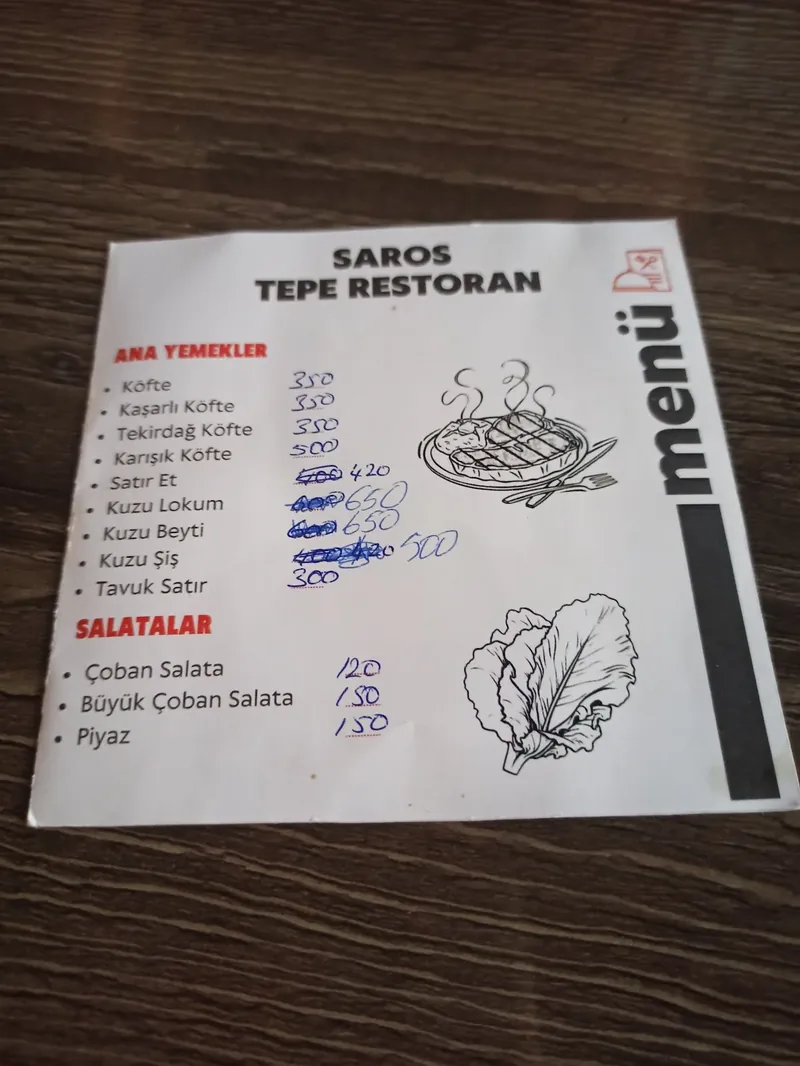 SAROS
TEPE RESTORAN
menü
ANA YEMEKLER
• Köfte 350
• Kaşarlı Köfte 350
• Tekirdağ Köfte 350
• Karışık Köfte 500
• Satır Et 420
• Kuzu Lokum 650
• Kuzu Beyti 650
• Kuzu Şiş 500
• Tavuk Satır 300
SALATALAR
• Çoban Salata 120
• Büyük Çoban Salata 150
• Piyaz 150